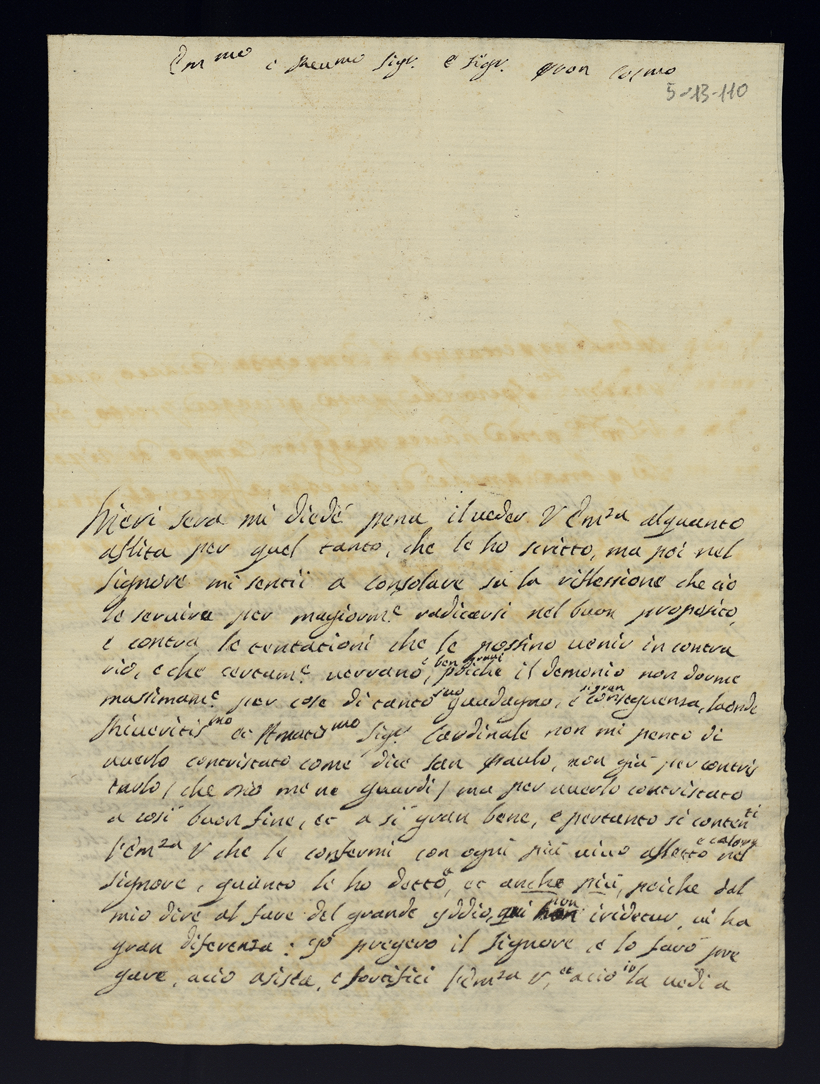 Em^mo e Reu^mo Sig^r. e Sig^r. Pron Colmo
5-13-110
Hieri sera mi diedé pena il ueder V Em^za alquanto
aflita per quel tanto, che le ho scritto, ma poi nel
Signore mi sentii a consolare sù la riflessione che ciò
le seruiua per magiorm^e radicarsi nel buon proposito,
e contra le tentationi che le possino uenir in contra
rio, e che certam^e uerrano, e ben graui poiche il demonio non dorme
massimam^e per cose di tanto suo guadagno, e di gran conseguenza, laonde
Riueritis^mo et Amatis^mo Sig^r Cardinale non mi pento di
auerlo contristato come dice san Paulo, non già per contris
tarlo / che Dio me ne guardi / ma per auerlo contristato
a così buon fine, et a sì gran bene, e pertanto si contenti
l'Em^za V che le confermi con ogni più uiuo affetto e calore nel
Signore, quanto le ho detto, et anche più, poiche dal
mio dire al fare del grande Yddio, qui non irridetur, ui ha
gran diferenza: Yo pregero il Signore, e lo farò pre
gare, acciò asista, e fortifici l'Em^za V, et acciò io la uedi a